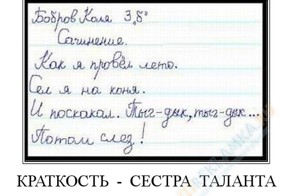 Бобров Коля 3 „б"
Сочинение.
Как я провёл лето.
Сел я на коня.
И поскакал. Тыг-дык, тыг-дык...
Потом слез!
КРАТКОСТЬ - СЕСТРА ТАЛАНТА